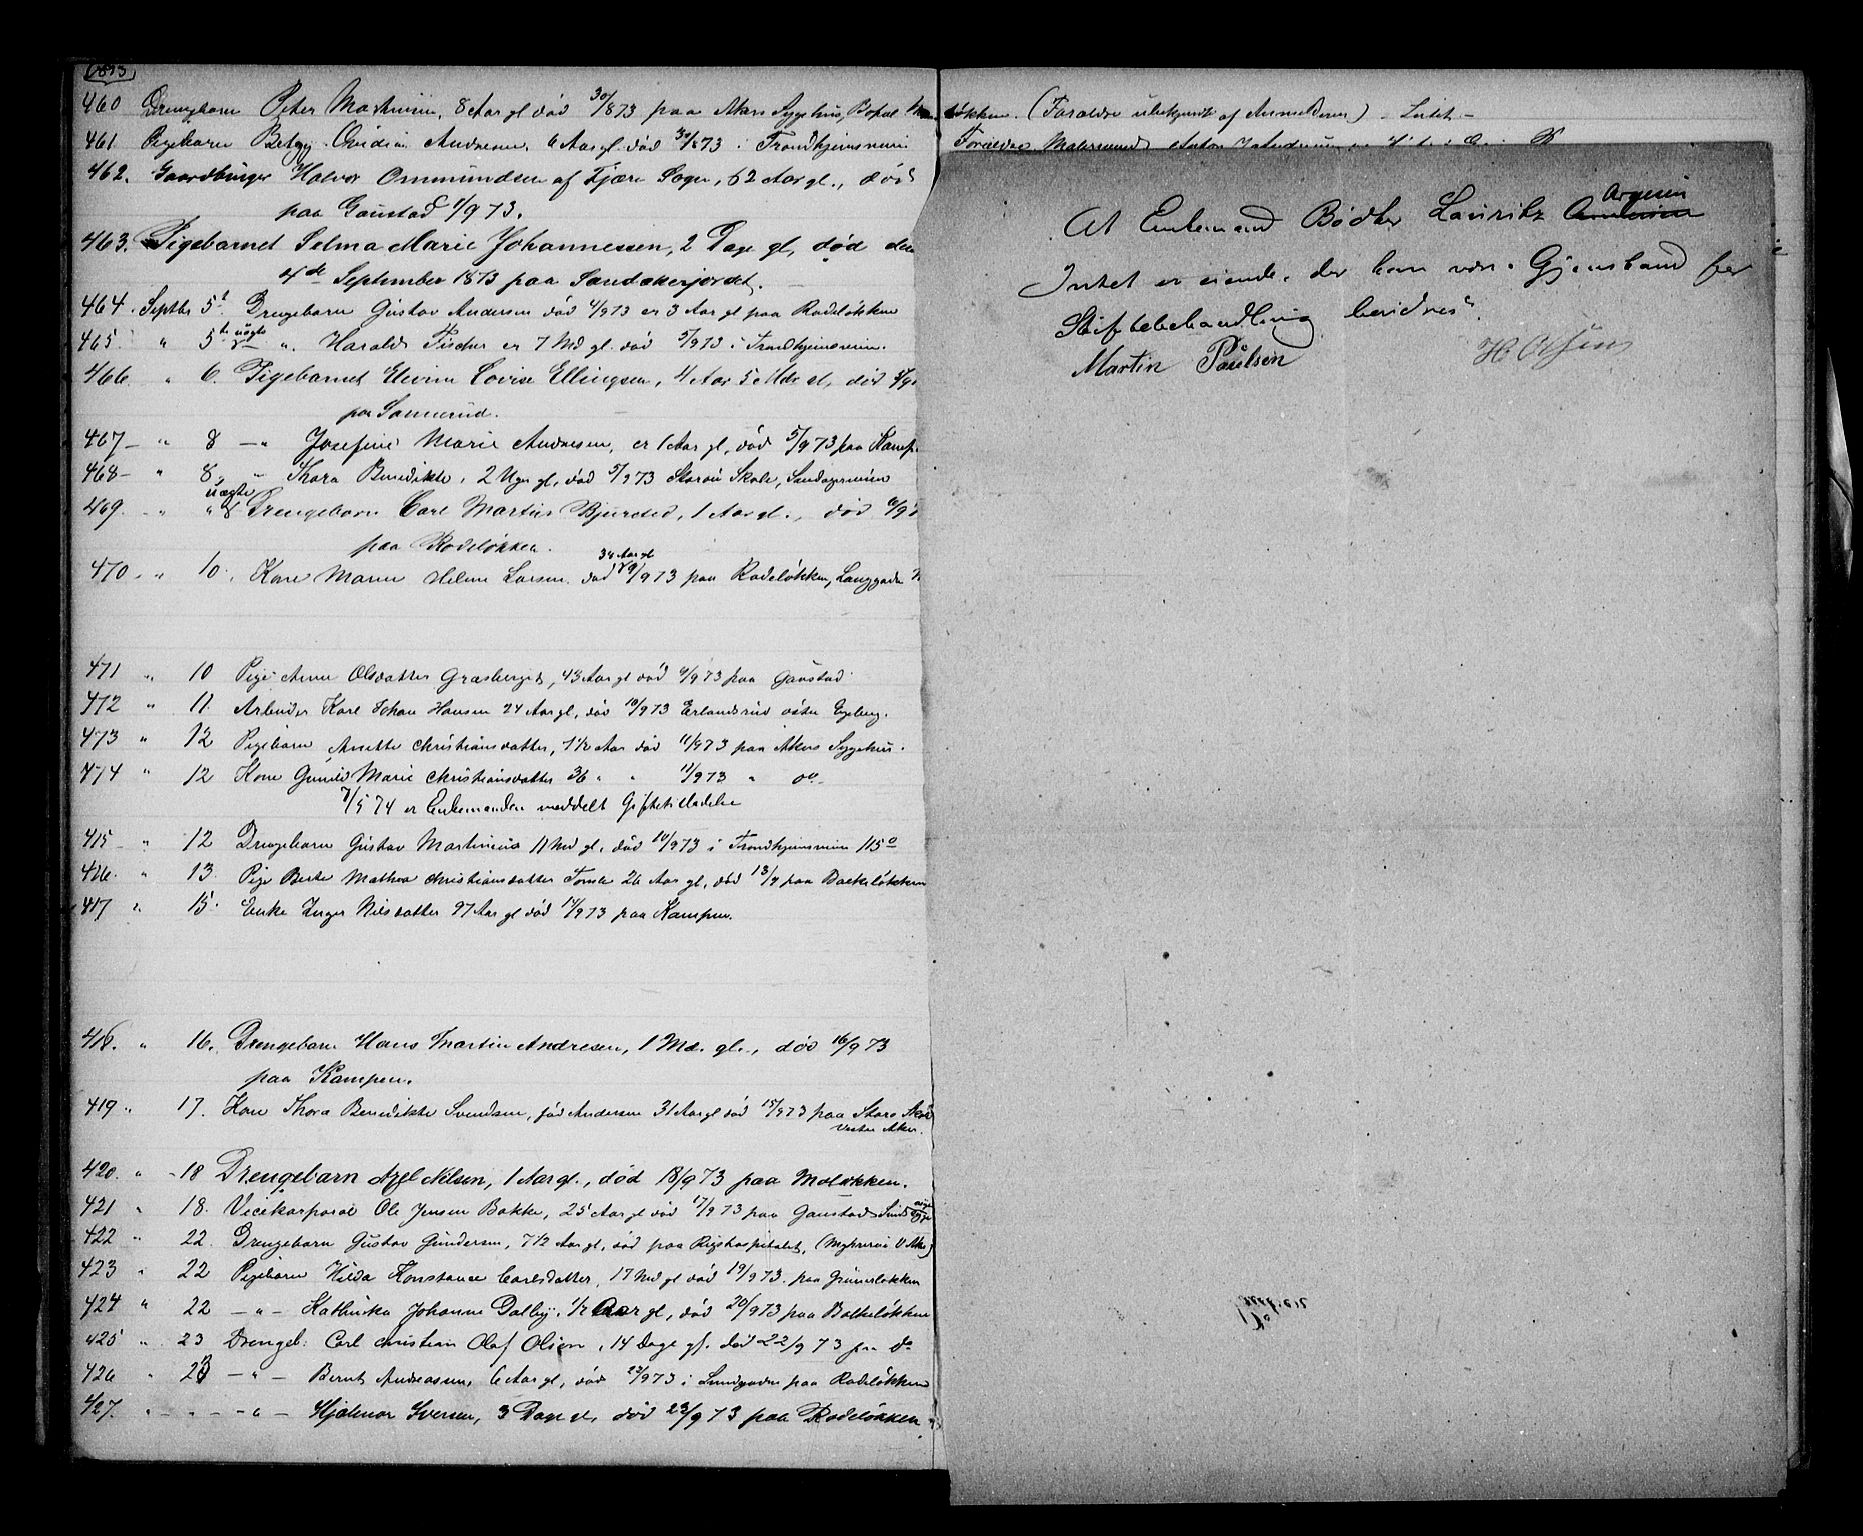 1873
460 Drengebarn Peter Martinsen, 8 Aar gl død 30/873 paa Akers Sygehus, Bopæl løkken. (Forældre ubekjendt af Anmelderen) - Intet -
461 Pigebarn Betzy Andresen, 6 Aar gl. død 30/873 i Trondhjemsveien Forældre
462. Gaardbruger Halvor Ommundsen af Fjære Sogn, 62 Aar gl., død
paa Gaustad 1/9 73.
463. Pigebarnet Selma Marie Johannessen, 2 Dage gl, død den
4de September 1873 paa Sandakerjordet.
464. Septbr 5t Drengebarn Gustav Andersen død 4/973 er 3 Aar gl paa Rodeløkken
465. " 5t uægte " Harald Fischer er 7 Md gl. død 5/973 i Trondhjemsveien.
466 " 6. Pigebarnet Elevine Lovise Ellingsen, 4 Aar 5 Mdr gl, død
paa Sannerud.
467 - " 8 - " Josefine Marie Andresen, er 1 Aar gl, død 5/973 paa Kamp
468 - " 8 " - Thora Benedikte, 2 Uger gl, død 5/973 Skole,
469. - " " 8 uægte Drengebarn Carl Martin Bjursted, 1 Aar gl., død
paa Rodeløkken.
470 - " 10. Kone Maren Helene Larsen. 34 Aar gl død /973 paa Rodeløkken, Langgaden
471 " 10 Pige Anne Olsdatter Græsberget, 43 Aar gl død 9/973 paa Gaustad
472 " 11. Arbeider Karl Johan Hansen 24 Aar gl, død 10/973 Erlandsrud østre Egeberg.
473 " 12 Pigebarn Anette Christiansdatter, 1 1/2 Aar død 11/973 paa Akers Sygehus.
474 " 12 Kone Gunild Marie Christiansdatter 36 " " 11/973 " do -
7/5 74 er Enkemanden meddelt Giftetilladelse
415 - " 12 Drengebarn Gustav Martinius 11 Md gl. død 10/973 i Trondhjemsveien 115
416. " 13. Pige Berte Mathea Christiansdatter 26 Aar gl, død 13/9 paa Balkeløkken
417 " 15. Enke Inger Nilsdatter 97 Aar gl død 14/973 paa Kampen.
416. " 16. Drengebarn Hans Martin Andresen, 1 Md. gl., død 16/973
paa Kampen.
419 " 17. Kone Thora Benedikte Svendsen, född Andersen 31 Aar gl død 15/973 paa
Vestre Aker.
420. " - 18 Drengebarn Axel Nilsen, 1 Aar gl., død 18/973 paa Moløkken.
421 " 18. Vicekorporal Ole Jensen Bakke, 25 Aar gl død 17/973 paa Gaustad Sindssyge
422 " 22. Drengebarn Gustav Gundersen, 7 1/2 Aar gl, død paa Rigshospitalet,
423 " 22 Pigebarn Hilda Konstance Carlsdatter, 17 Md gl død 19/973. paa Grünerløkken
424 " 22 - " - Kathinka Johanne Dalby, 1/2 Aar gl, død 20/973 paa Balkeløkken
425 " 23 Drengeb. Carl Christian Olaf Olsen, 14 Dage gl. død 22/9 73 paa do
426 " 23 - " - Bernt Andreassen, 6 Aar gl, død 22/973 i Lundgaden paa Rodeløkken
427. " - " - - " - Hjalmar Iversen, 3 Dage gl, død 23/973 paa Rodeløkken
At Enkemand Bødker Lauritz Arnesen
Intet er eiende, der kan være Gjenstand for
Skiftebehandling bevidnes.
Martin Paulsen
H Olsen